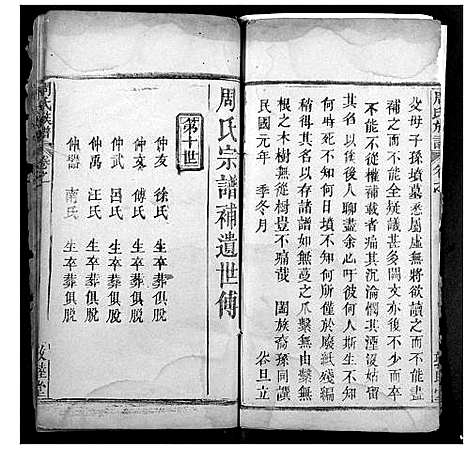 周氏族譜 卷之
父母子孫墳墓悉屬虛無將欲讀之而不能盡
補之而不能全疑議甚多闕文亦後不少與其
不能而不從權補載者痛其沉淪憫其湮沒姑留
其名以俟後人聊盡余心吁嗟斯人斯生不知
何時死不知何日墳不知何所僅於廢紙殘編
稍得其名諸如無蒂之爪繫無由繫無
根之木樹無從樹豈不痛哉 闔族裔孫同譔
民國元年 季冬月 穀旦立
周氏宗譜補遺世傳
第十世
仲友 徐氏 生卒葬俱脫
仲亥 傅氏 生卒葬俱脫
仲武 呂氏 生卒葬俱脫
仲萬 汪氏 生卒葬俱脫
仲瑞 南氏 生卒葬俱脫
周氏族譜 卷之